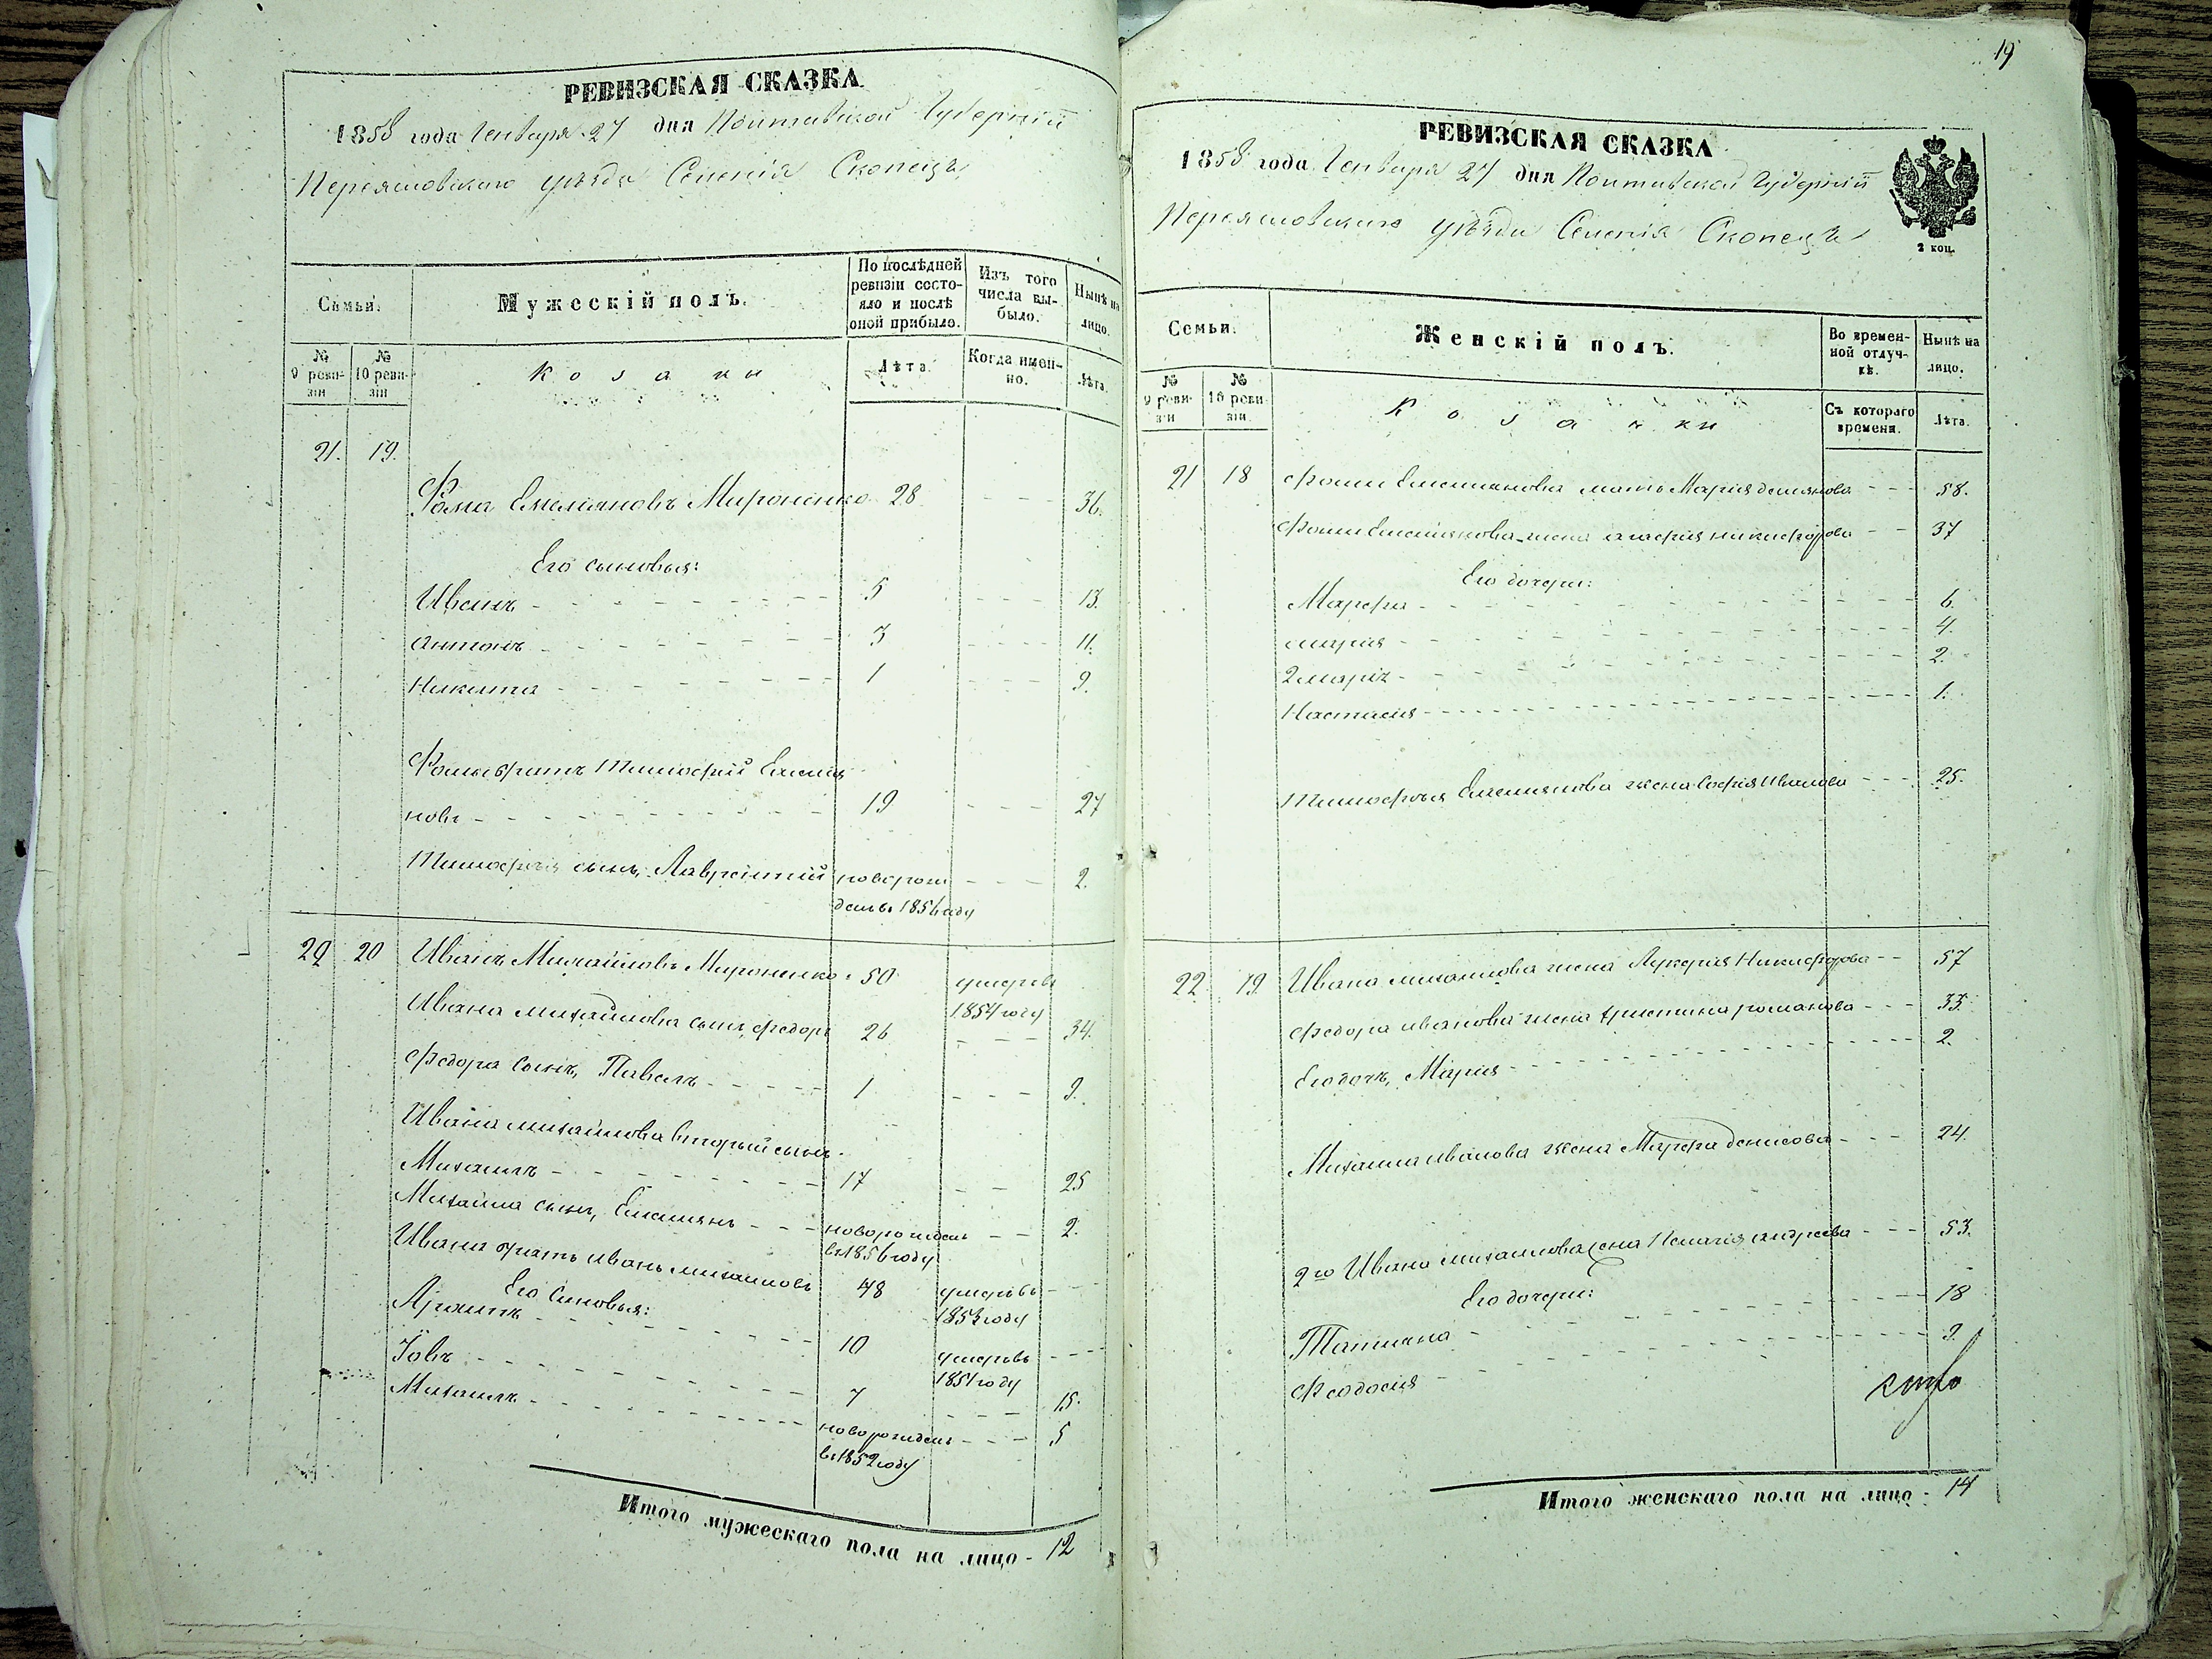 РЕВИЗСКАЯ СКАЗКА
1858 года Генваря 27 дня Полтавской Губерніи
Переяславского уѣзда Селенія Скопецъ
Семьи.
Мужескій полъ.
По послѣдней ревизіи состояло и послѣ оной прибыло.
Изъ того числа выбыло.
Нынѣ на лицо.
№ 9 ревизіи
№ 10 ревизіи
Козаки
Лѣта.
Когда именно.
Лѣта.
21. 19.
Фома Емельяновъ Мироненко 28 - - - 36.
Его сыновья:
Иванъ - 5 - - - 13.
Антонъ - 3 - - - 11.
Никита - 1 - - - 9.
Фомы братъ Тимофей Емелья
новъ - 19 - - - 27
Тимофея сынъ, Лаврентій новорож - - - 2.
денъ въ 1856 году
22 20 Иванъ Михайловъ Мироненко 50 умеръ въ
1854 году
Ивана Михайлова сынъ Федоръ 26 - - - 34.
Федора сынъ, Павелъ - 1 - - - 9.
Ивана Михайлова вторый сынъ
Михаилъ - 17 - - 25
Михайла сынъ, Емельянъ - - - новорожденъ - - 2.
въ 1856 году
Ивана братъ Иванъ Михайловъ 48 умеръ въ - - -
1853 году
Его Сыновья:
10 умеръ въ - - -
1851 году
Іовъ - 7 - - - 15.
Михаилъ - новорожденъ - - - 5
въ 1852 году
Итого мужескаго пола на лицо - 12
19
РЕВИЗСКАЯ СКАЗКА
1858 года Генваря 27 дня Полтавской Губерніи
Переяславского уѣзда Селенія Скопецъ
2 коп.
Семьи.
Женскій полъ.
Во временной отлучкѣ.
Нынѣ на лицо.
№ 9 ревизіи
№ 10 ревизіи
Козачки
Съ котораго времени.
Лѣта.
21 18 Фомы Емельянова мать Марія Демьянова - - 58.
Фомы Емельянова жена Агафія Никифорова - - 37
Его дочери:
Марфа - 6.
Марія - 4.
2 Марія - 2.
Настасия - 1.
Тимофея Емельянова жена София Иванова - - - 25.
22. 19. Ивана Михайлова жена Лукерия Никифорова - - 57
Федора Иванова жена Христина Романова - - - 33.
Его дочь, Мария - 2.
Михаила Иванова жена Марфа Денисова - - - 24.
2го Ивана Михайлова жена Пелагія Андреева - - - 53.
Его дочери:
Татиана - 18
Феодосия - 9.
Итого женскаго пола на лицо - 14